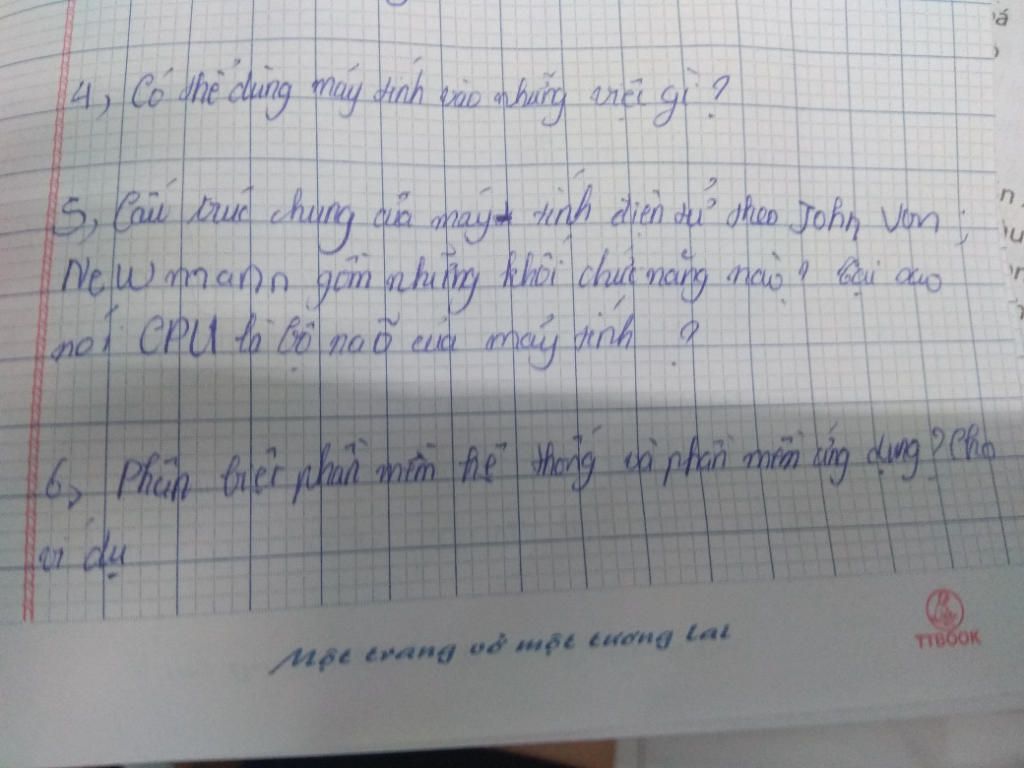 4, Có thể dùng máy tính vào những việc gì ?
5, Cấu trúc chung của máy tính điện tử theo John Von
Newmann gồm những khối chức năng nào ? Tại sao
nói CPU là bộ não của máy tính ?
6, Phân biệt phần mềm hệ thống và phần mềm ứng dụng ? Cho
ví dụ
Một trang vở một tương lai
TTBOOK